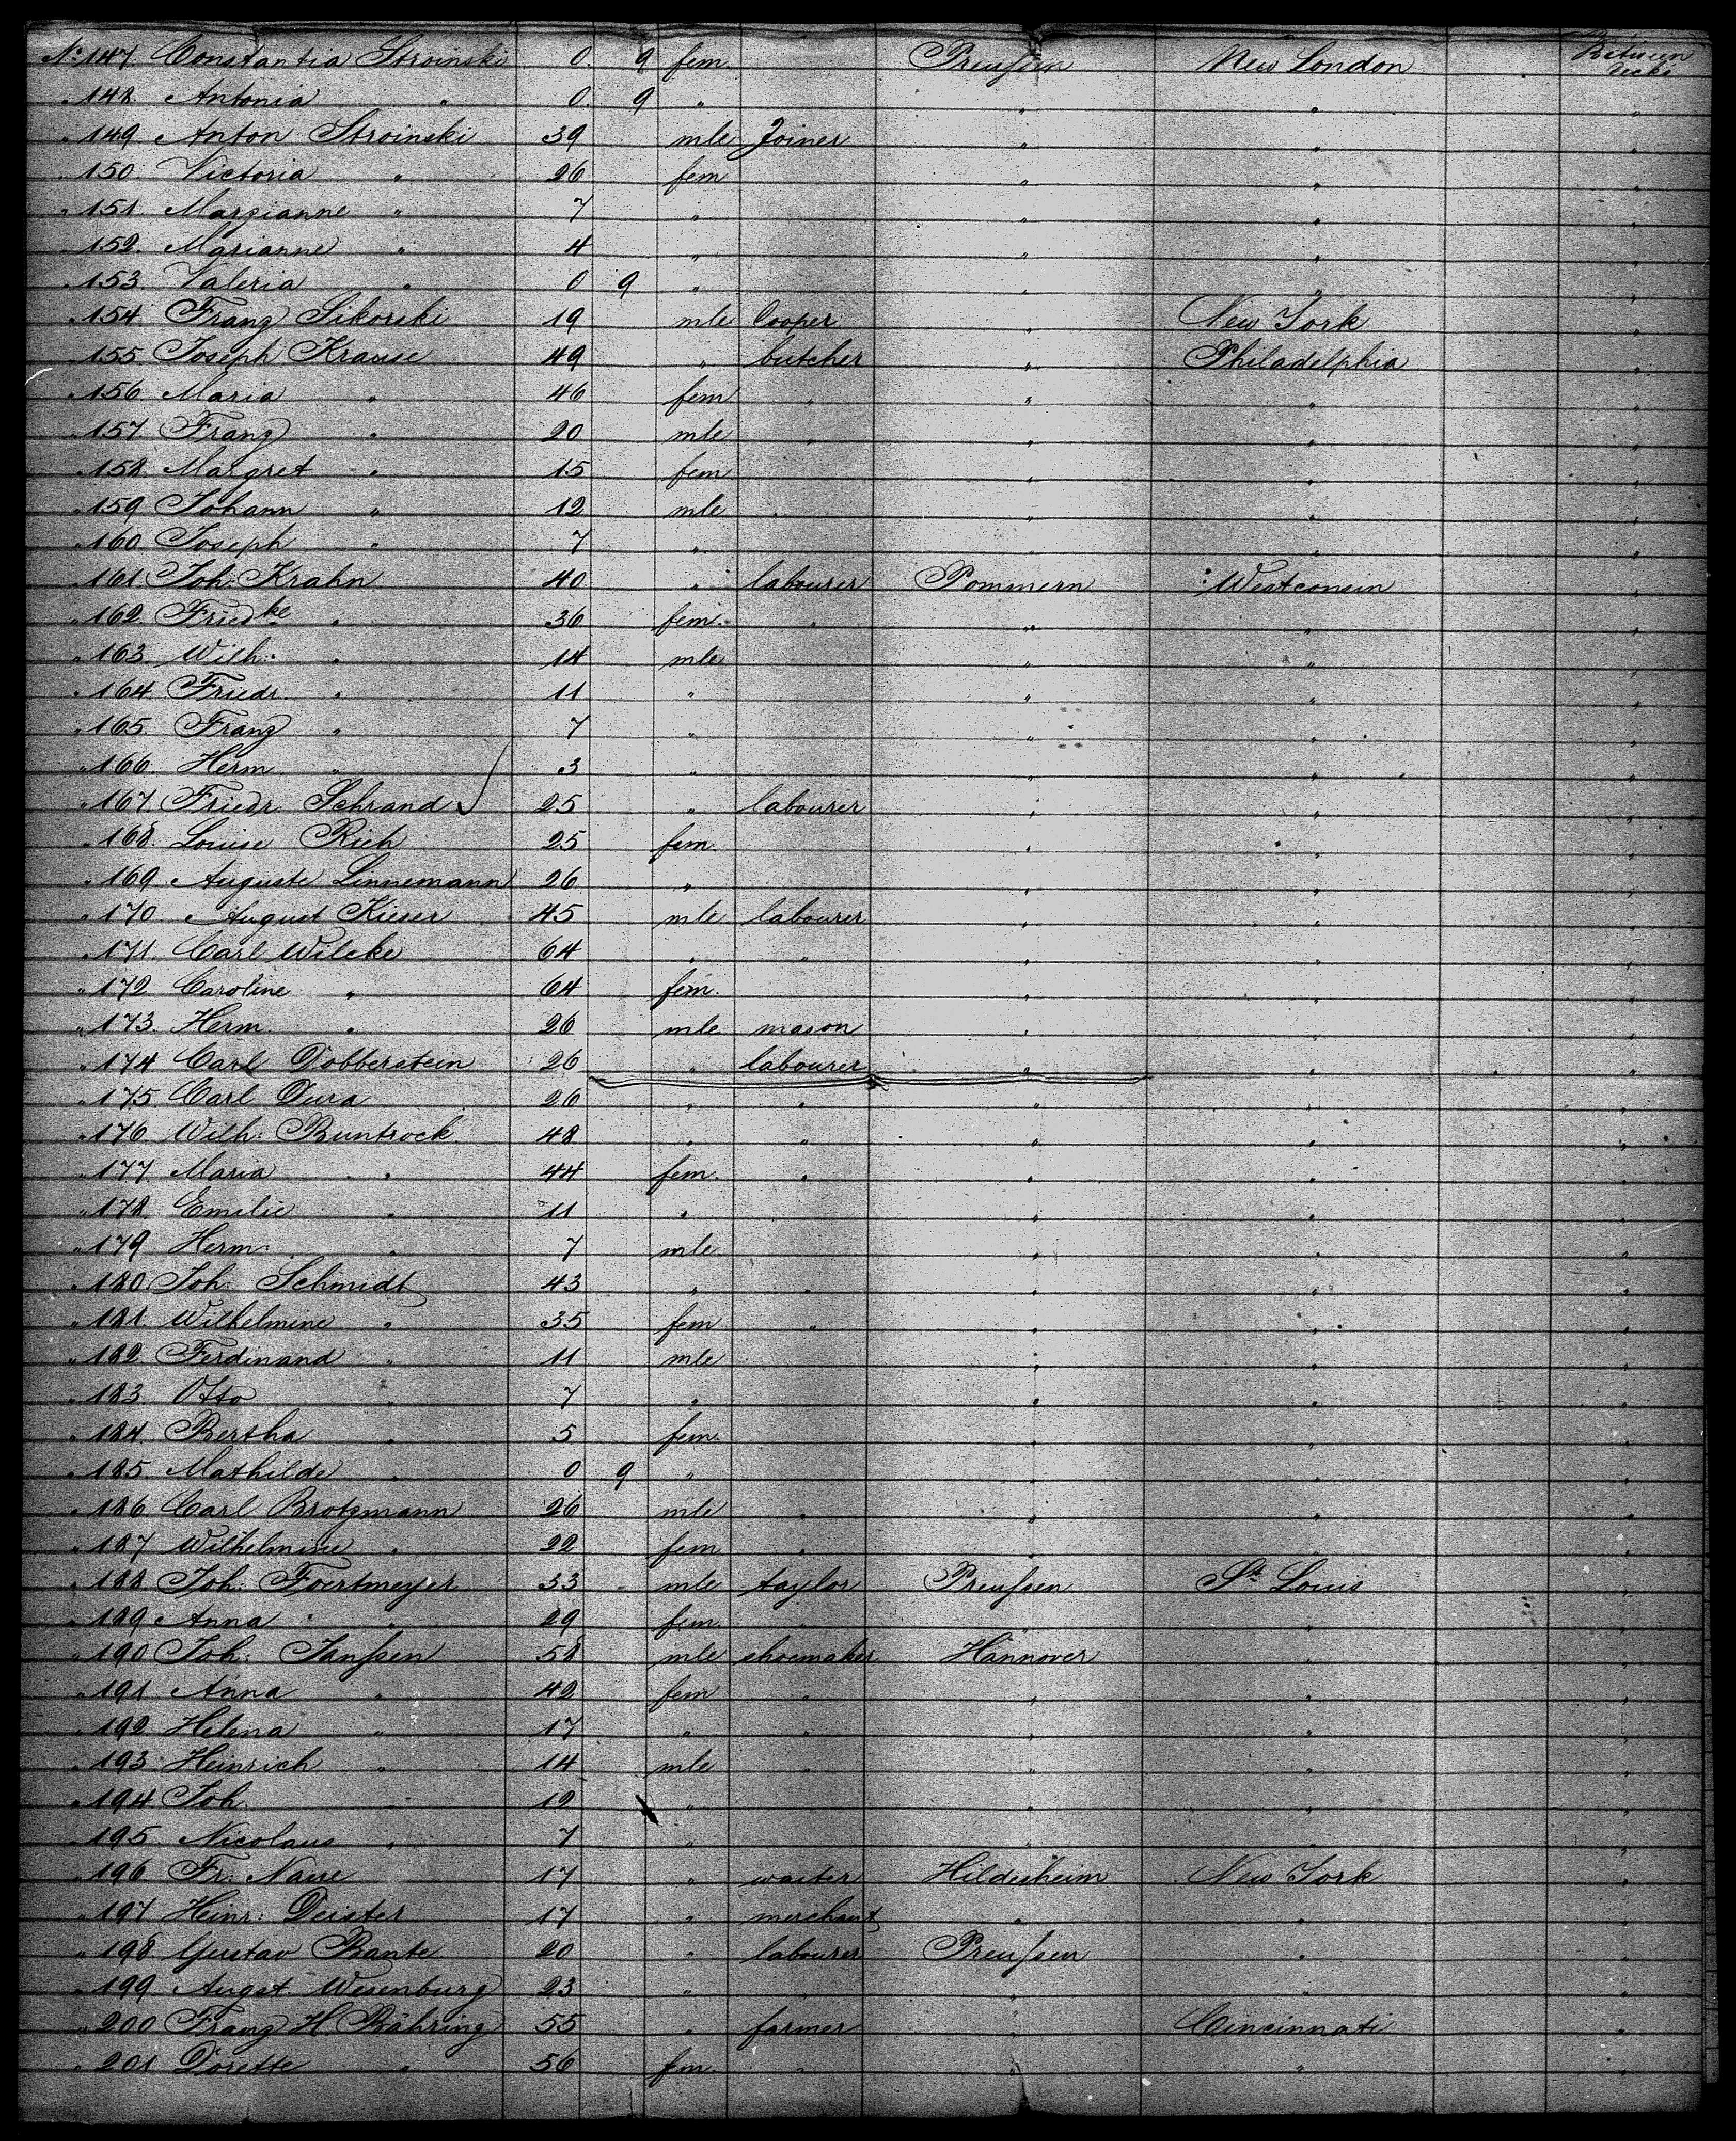 No 147 Constantia Stroinski 0 9 fem Preußen New London Between Decks
" 148 Antonia " 0 9 " " " "
" 149 Anton Stroinski 39 mle Joiner " " "
" 150 Victoria " 26 fem " " "
" 151 Margianne " 7 " " " "
" 152 Marianne " 4 " " " "
" 153 Valeria " 0 9 " " " "
" 154 Franz Sikorski 19 mle Cooper " New York "
" 155 Joseph Krause 49 " butcher " Philadelphia "
" 156 Maria " 46 fem " " " "
" 157 Franz " 20 mle " " " "
" 158 Margret " 15 fem " " "
" 159 Johann " 12 mle " " "
" 160 Joseph " 7 " " " "
" 161 Joh: Krahn 40 " labourer Pommern Westconsin "
" 162 Friedke " 36 fem. " " " "
" 163 Wilh: " 14 mle " " "
" 164 Friedr. " 11 " " " "
" 165 Franz " 7 " " " "
" 166 Herm " 3 " " " "
" 167 Friedr. Schrand 25 " labourer " " "
" 168 Louise Rich 25 fem. " " "
" 169 Auguste Linnemann 26 " " " "
" 170 August Kieser 45 mle labourer " " "
" 171 Carl Wilcke 64 " " " " "
" 172 Caroline " 64 fem. " " "
" 173 Herm " 26 mle mason " " "
" 174 Carl Dobberstein 26 " labourer " " "
" 175 Carl Dura 26 " " " " "
" 176 Wilh: Buntrock 48 " " " " "
" 177 Maria " 44 fem. " " " "
" 178 Emilie " 11 " " " "
" 179 Herm: " 7 mle " " "
" 180 Joh: Schmidt 43 " " " " "
" 181 Wilhelmine " 35 fem " " " "
" 182 Ferdinand " 11 mle " " "
" 183 Otto " 7 " " " "
" 184 Bertha " 5 fem. " " "
" 185 Mathilde " 0 9 " " " "
" 186 Carl Brotzmann 26 mle " " " "
" 187 Wilhelmine " 22 fem " " " "
" 188 Joh: Foertmeyer 33 mle taylor Preußen St Louis "
" 189 Anna " 29 fem. " " " "
" 190 Joh: Janßen 58 mle shoemaker Hannover " "
" 191 Anna " 42 fem " " " "
" 192 Helena " 17 " " " " "
" 193 Heinrich " 14 mle " " " "
" 194 Joh. " 12 " " " "
" 195 Nicolaus " 7 " " " "
" 196 Fr. Nause 17 " waiter Hildesheim New York "
" 197 Heinr: Deister 17 " merchant " " "
" 198 Gustav Bante 20 " labourer Preußen " "
" 199 Augst Wesenburg 23 " " " " "
" 200 Franz H. Bähring 55 " farmer " Cincinnati "
" 201 Dorette " 56 fem. " " " "